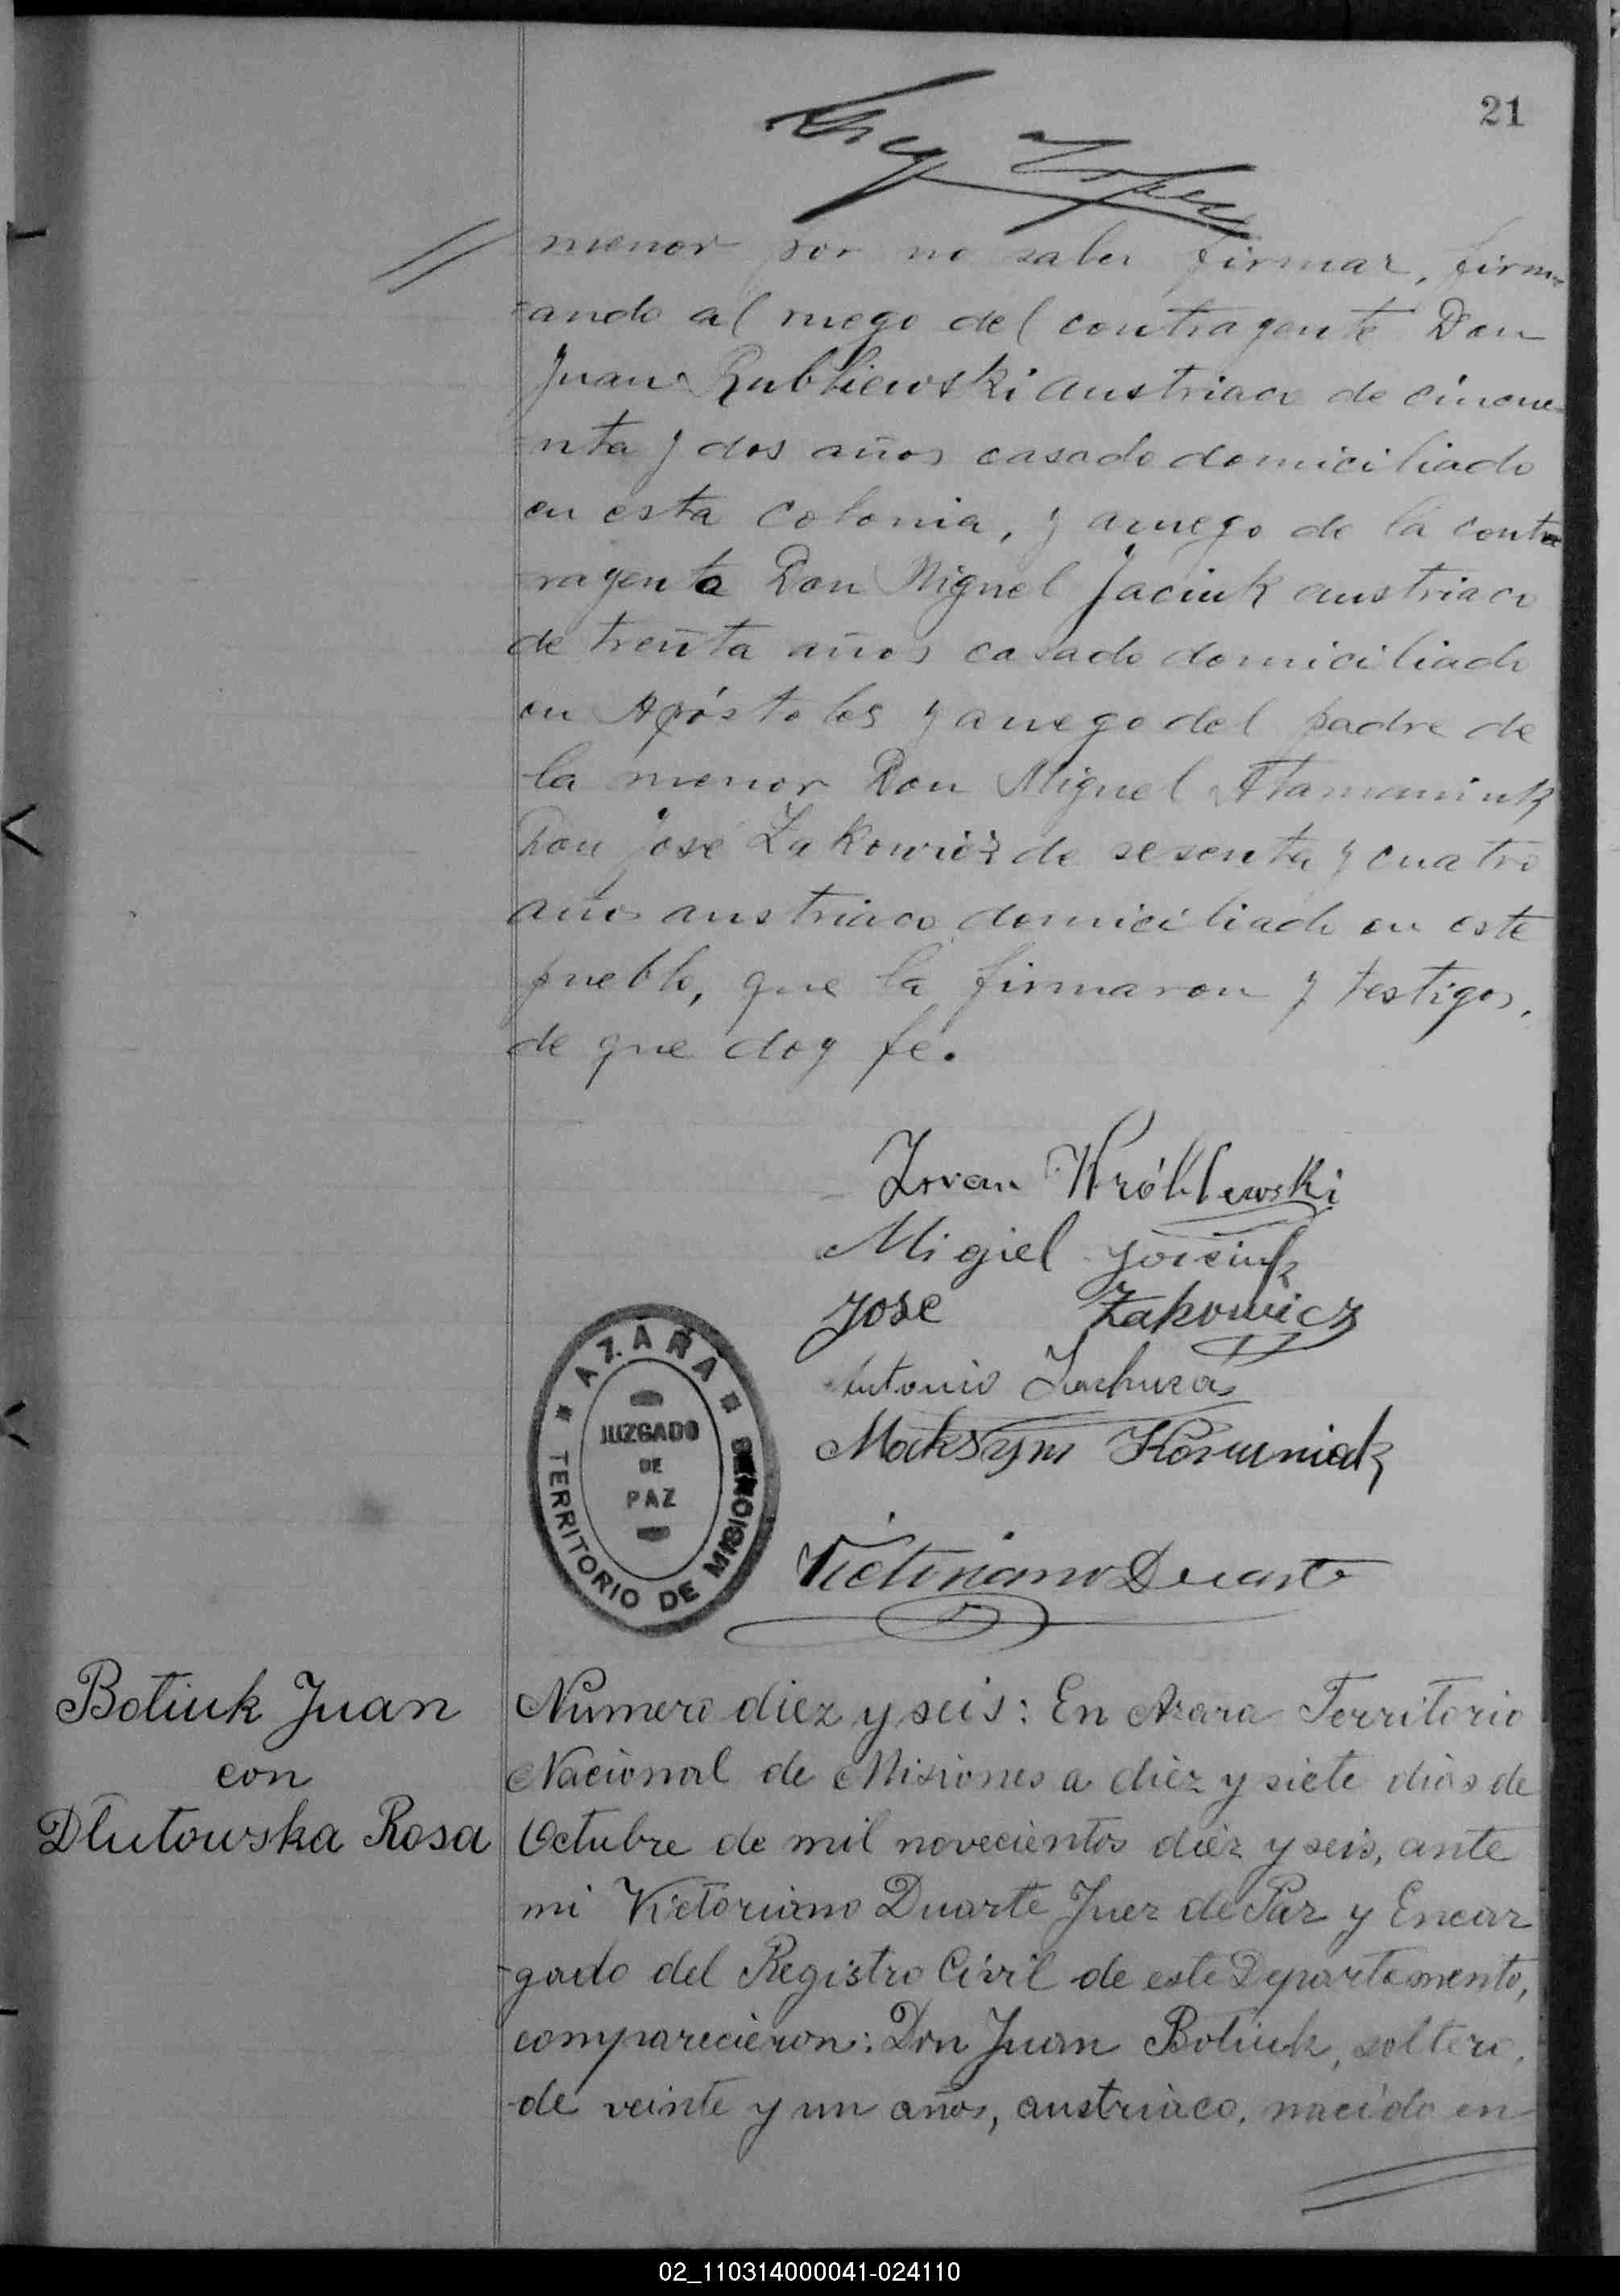 21
menor por no saber firmar, firm-
-ando al ruego del contrayente Don
Juan Rubliewski austriaco de cincue-
-nta y dos años casado domiciliado
en esta colonia, y aruego de la cont
rayenta Don Miguel Jaciuk austriaco
de treinta años casado domiciliado
en Apóstoles y aruego del padre de
la menor Don Miguel Atamaniuk
Don José Zakowicz de sesenta y cuatro
años austriaco domiciliado en este
pueblo, que la firmaron y testigos,
de que doy fe.
Wróblewski
Migiel
Jose Zakowicz
Antonio
Maksym
Victoriano Duarte
AZARA
JUZGADO
DE
PAZ
TERRITORIO DE MISIONES
Botiuk Juan
con
Dlutowska Rosa
Numero diez y seis: En Azara Territorio
Nacional de Misiones a diez y siete dias de
Octubre de mil novecientos diez y seis, ante
mi Victoriano Duarte Juez de Paz y Encar
-gado del Registro Civil de este Departamento,
comparecieron: Don Juan Botiuk, soltero,
de veinte y un años, austriaco, nacido en
02_110314000041-024110